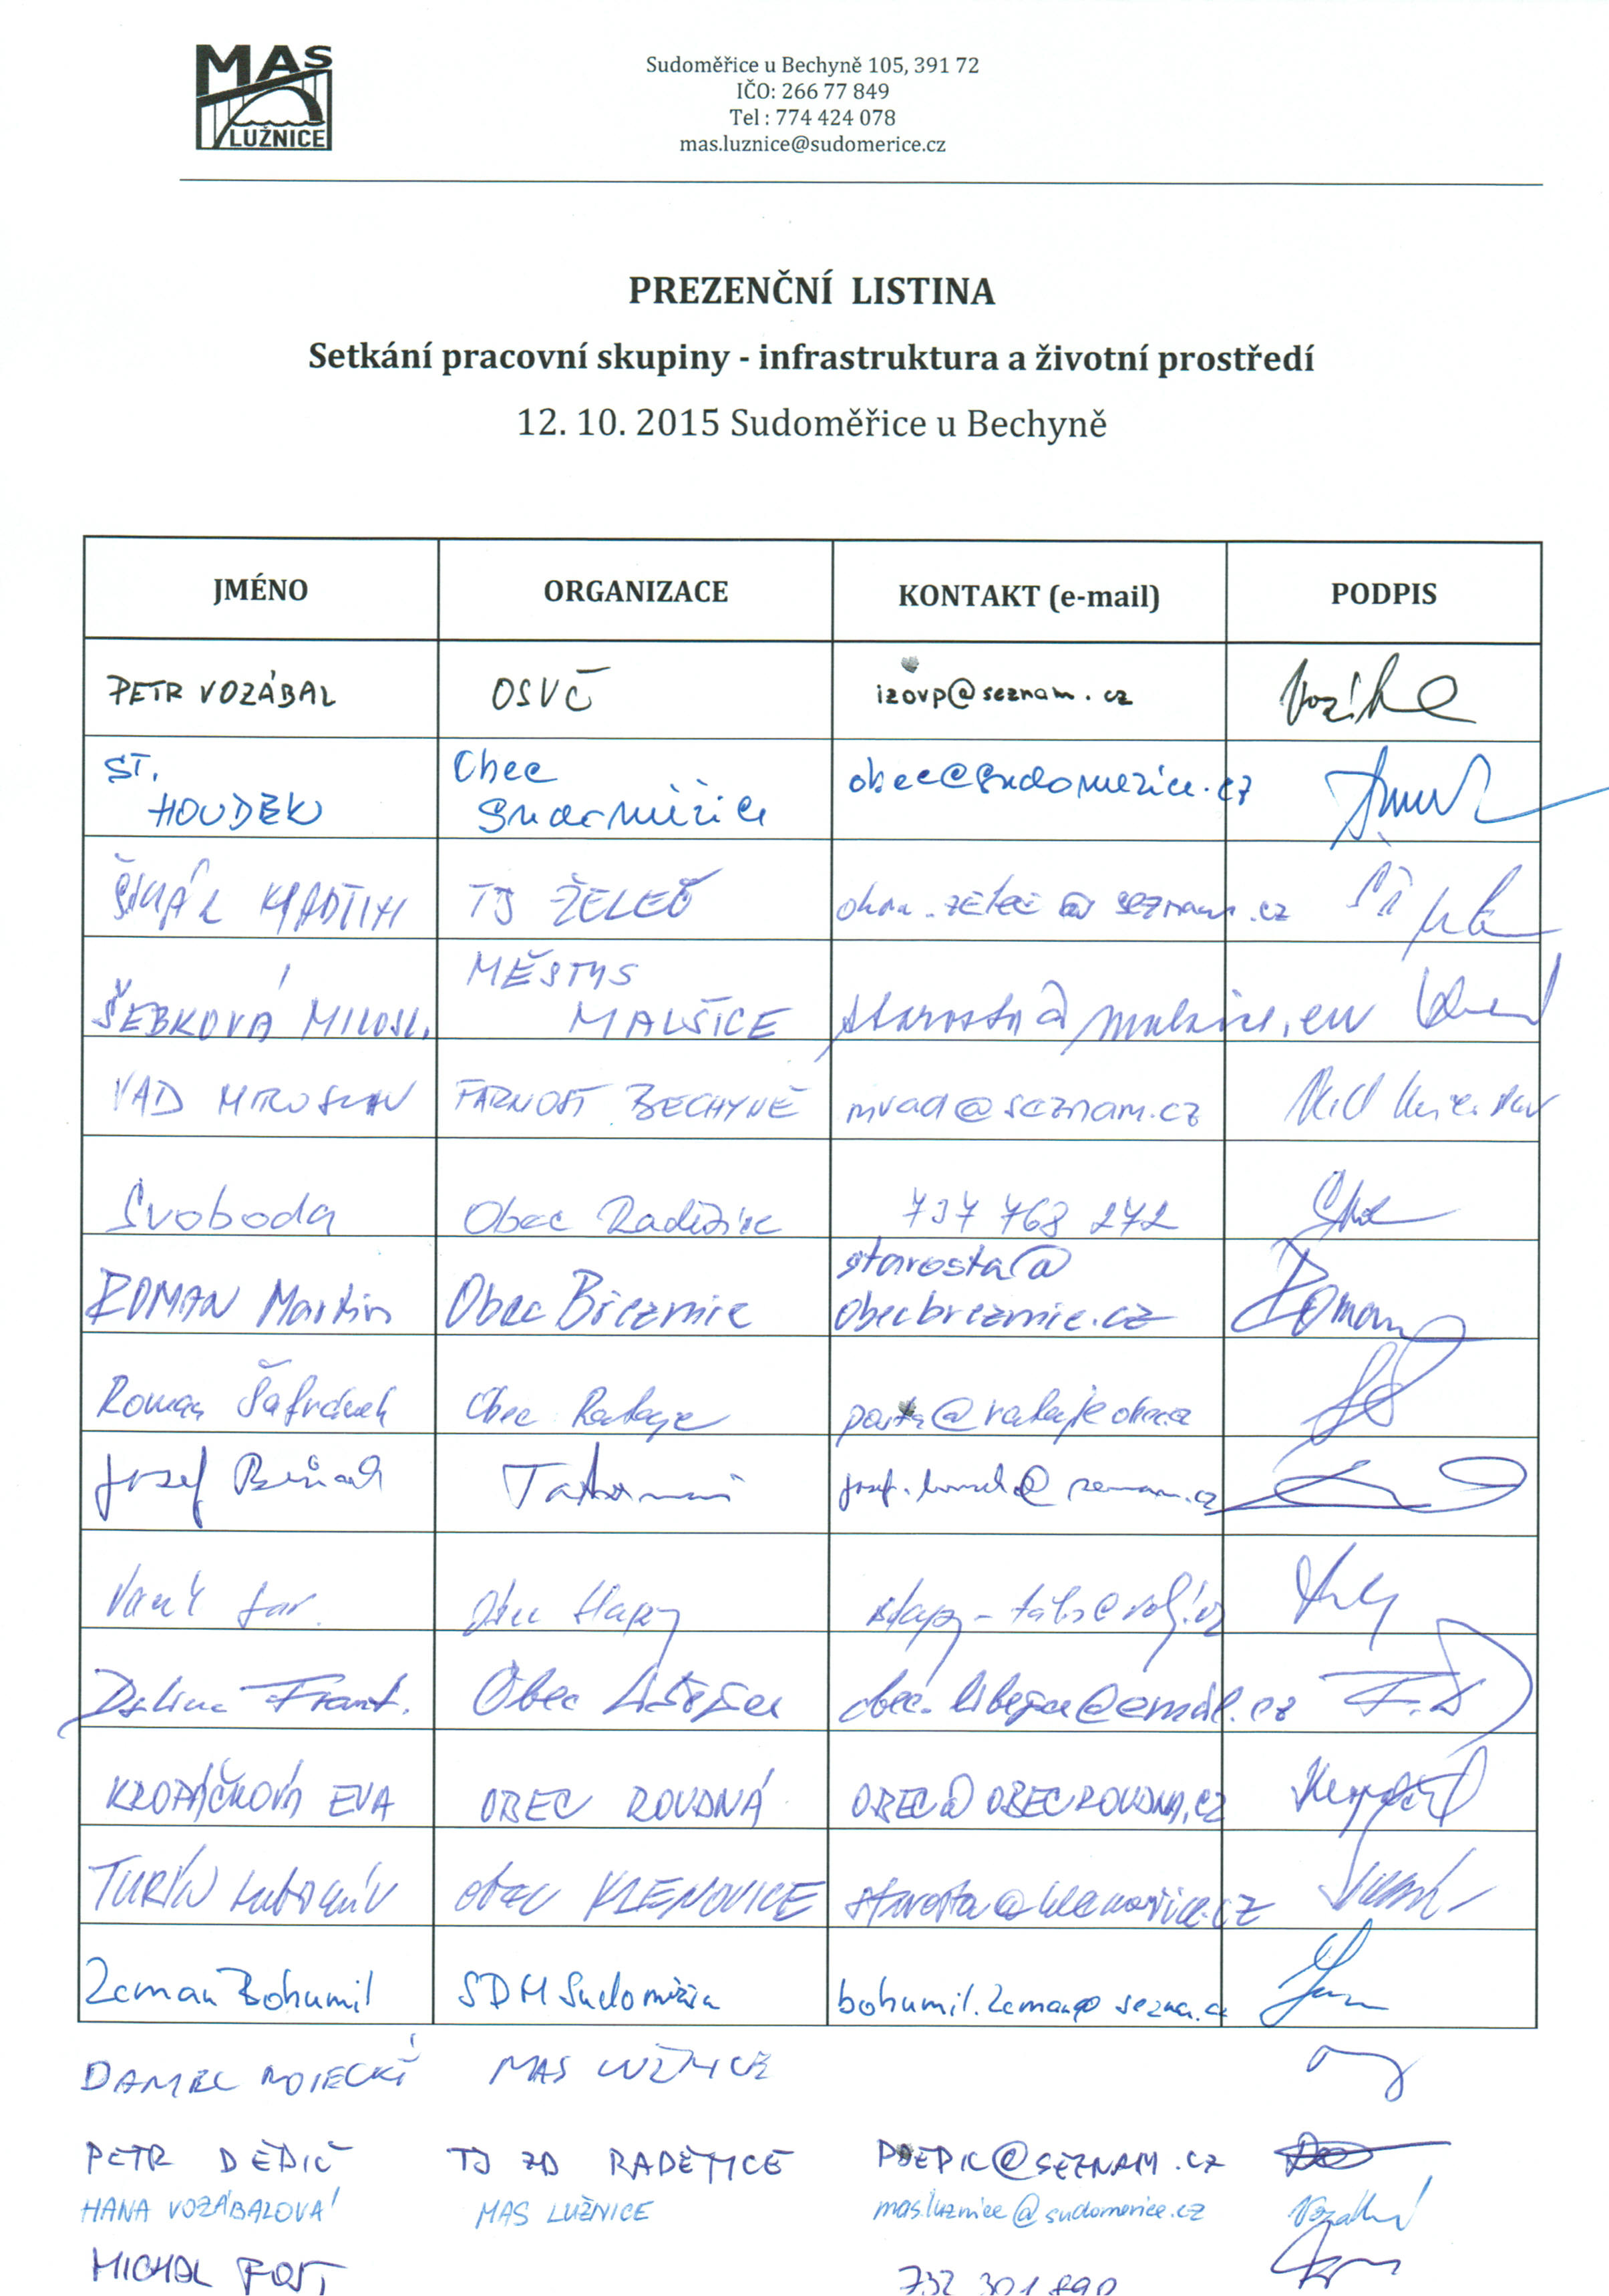 MAS
LUŽNICE
Sudoměřice u Bechyně 105, 391 72
IČO: 266 77 849
Tel : 774 424 078
mas.luznice@sudomerice.cz
PREZENČNÍ LISTINA
Setkání pracovní skupiny - infrastruktura a životní prostředí
12. 10. 2015 Sudoměřice u Bechyně
JMÉNO ORGANIZACE KONTAKT (e-mail) PODPIS
PETR VOZÁBAL OSVČ izovp@seznam.cz
ST. HOUDEK Obec Sudoměřice obec@sudomerice.cz
TJ ŽELEČ seznam.cz
ŠEBKOVÁ MILOSL. MĚSTYS MALŠICE starosta@malsice.eu
VAD MIROSLAV FARNOST BECHYNĚ mvad@seznam.cz
Svoboda Obec Radětice 737 768 272
ROMAN Martin Obec Březnice starosta@obecbreznice.cz Roman
Roman Šafránek Obec Rataje
Josef
Obec Slapy
Frant. Obec Libějice obec.libejice@email.cz
KROPÁČKOVÁ EVA OBEC ROUDNÁ OBEC@OBECROUDNA.CZ
TURÍN Lubomír obec KLENOVICE starosta@klenovice.cz
Zeman Bohumil SDH Sudoměřice
DANIEL MAS LUŽNICE
PETR DĚDIČ TJ ZD RADĚTICE
HANA VOZÁBALOVÁ MAS LUŽNICE mas.luznice@sudomerice.cz
MICHAL 732 301 890